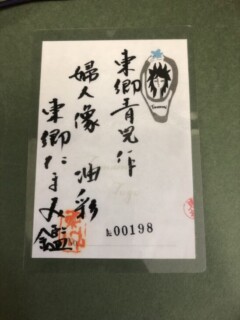 東郷青児作
婦人像 油彩
東郷たまみ鑑
№00198